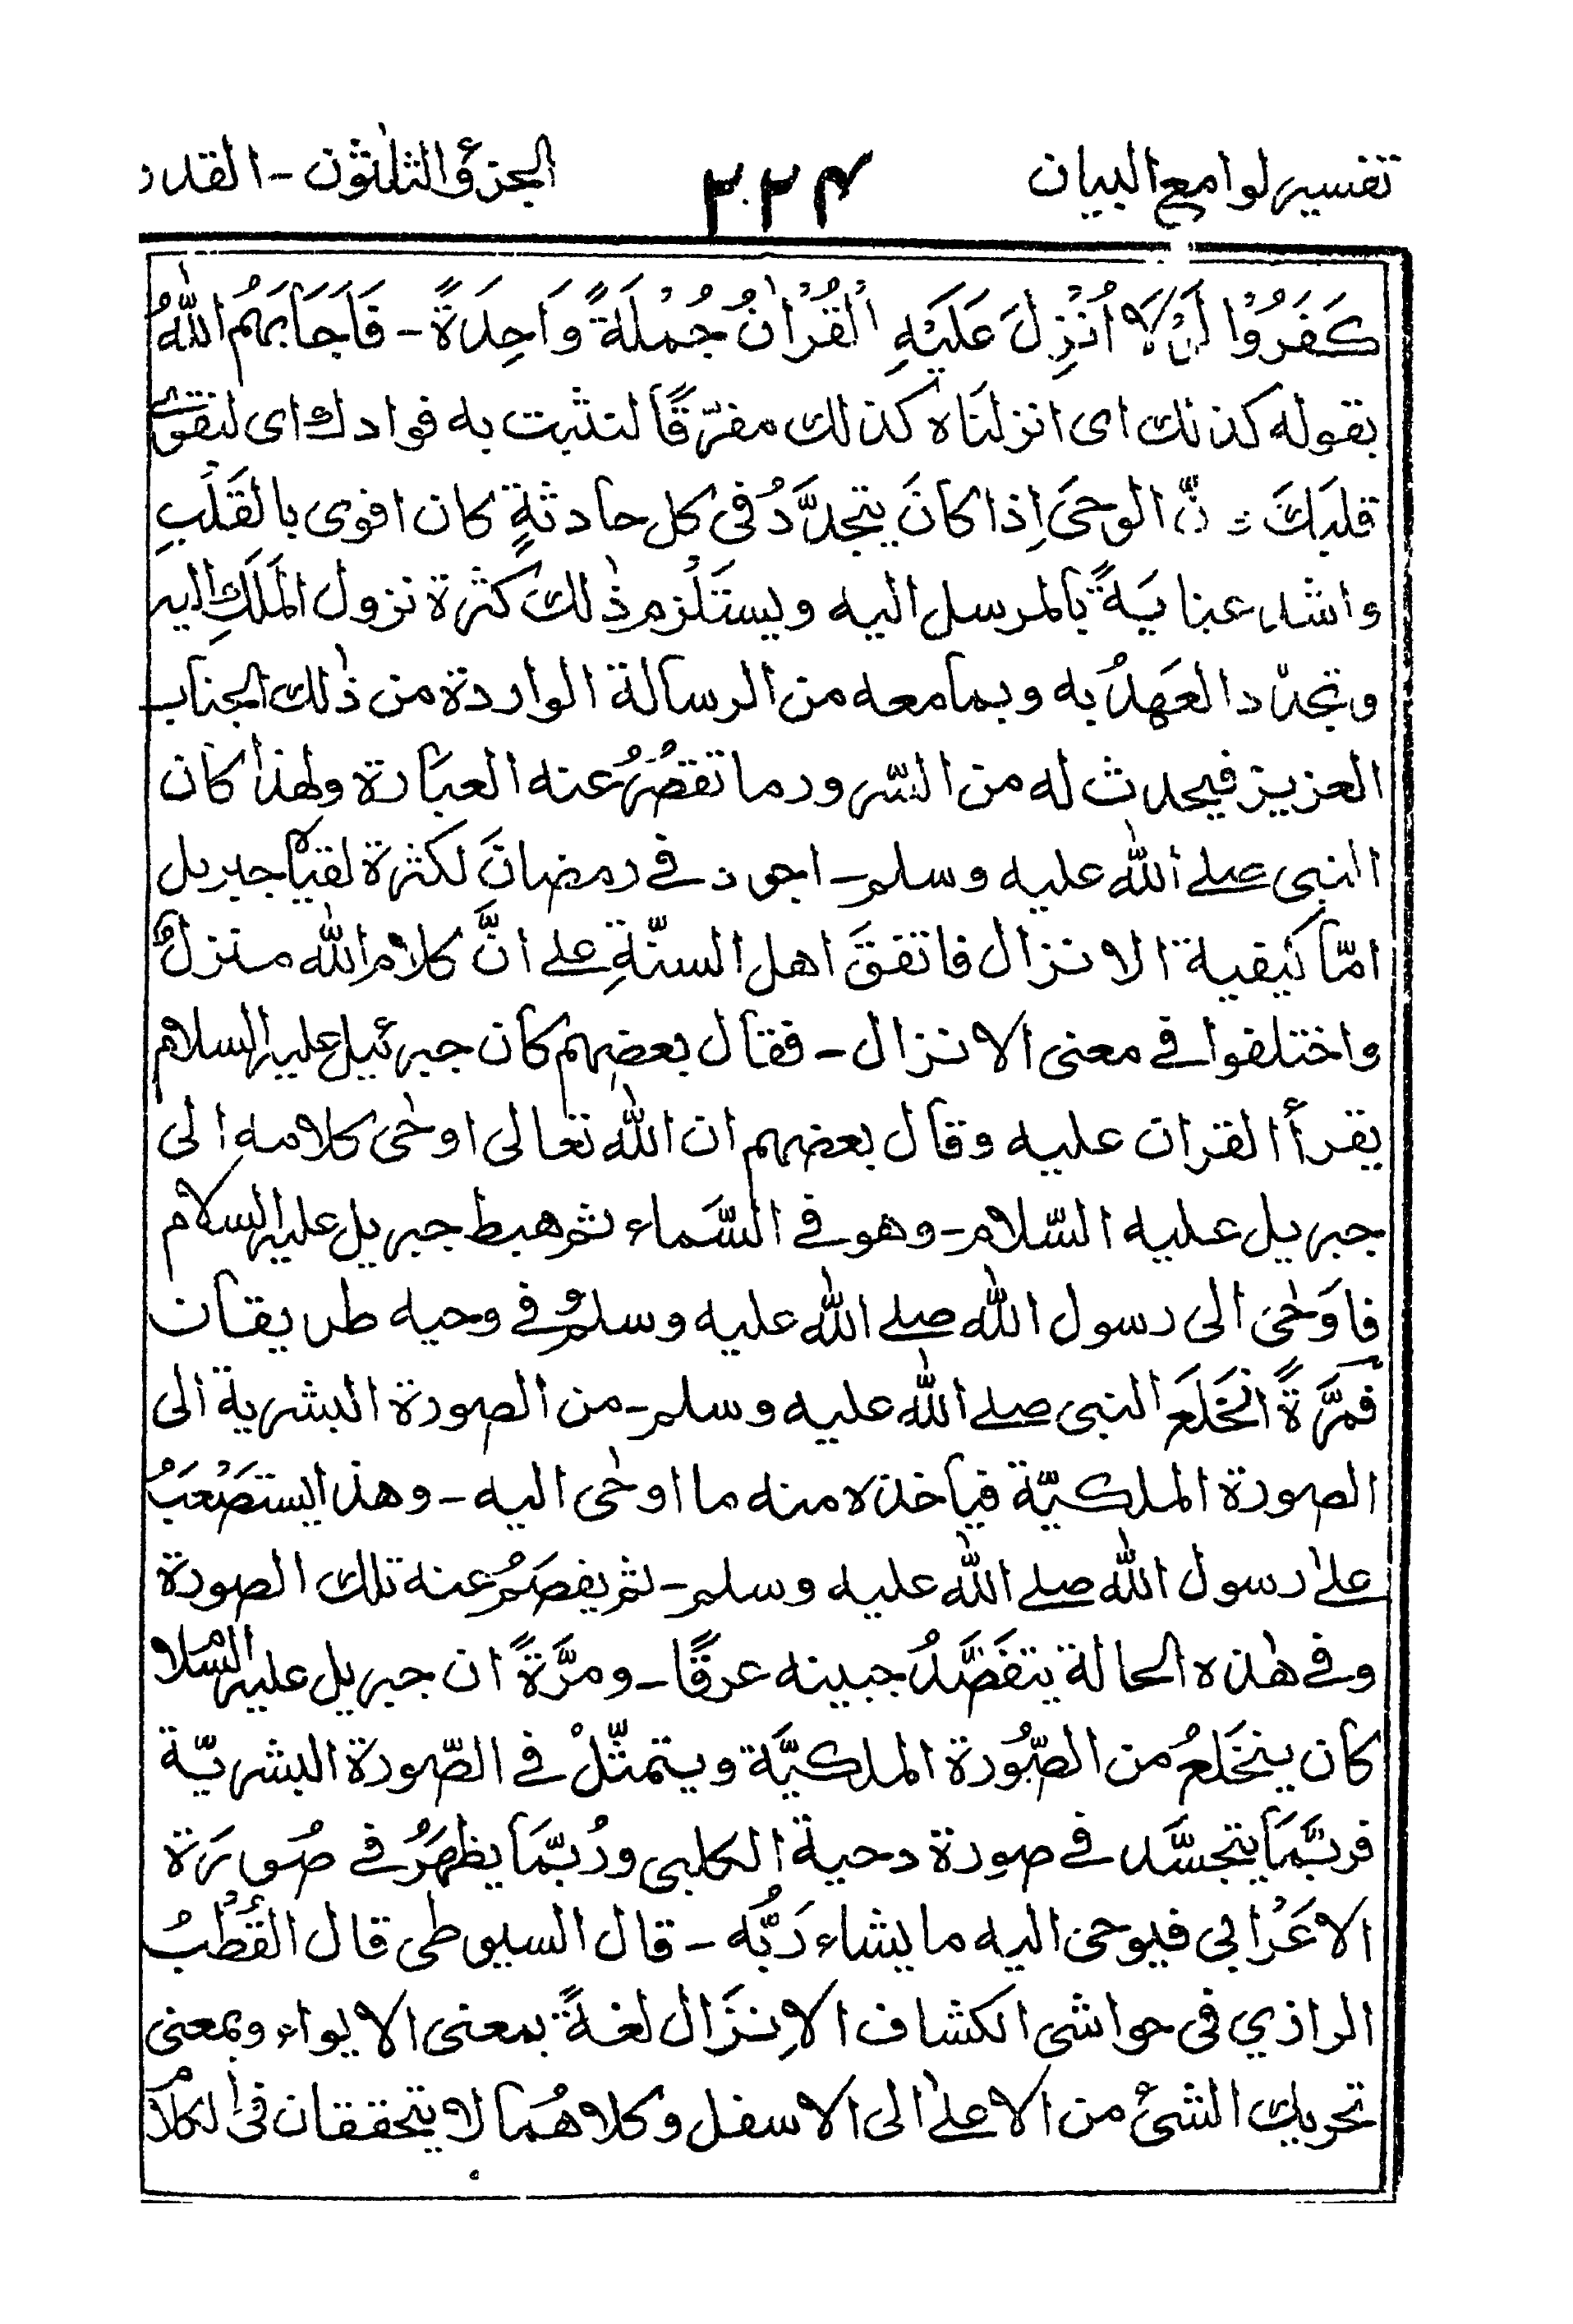 تفسير لوامع البيان ٢٢٤ الجزؤ الثلٰثون - القدر
كَفَرُوْا لَوْلَا اُنْزِلَ عَلَيْهِ الْقُرْاٰنُ جُمْلَةً وَاحِدَةً - فَاَجَابَهُم اللّٰهُ
بقوله كذلك اى انزلنَاه كذلك مفرّقًا لنثبت به فوادك اى لنقوّى
قلبَكَ فانّ الوحىَ اِذا كانَ يتجدَّدُ فى كل حادثةٍ كان اقوى بالقَلْبِ
واشد عنايَةً بالمرسل اليه ويستَلْزم ذٰلك كثرة نزول المَلَكِ اليه
وتجدّد العَهدُ به وبما معه من الرسالة الواردة من ذٰلك الجناب
العزيز فيحدث له من السّرور ما تقصُرُ عنه العبَارة ولهٰذا كان
النبى صلے اللّٰه عليه وسلم - اجود فے رمضانَ لكثرة لقياه جبريل
امّا كيفية الانزال فاتفقَ اهل السنّةِ علے انَّ كلام اللّٰه منزلٌ
واختلفوا فے معنى الانزال - فقال بعضهم كان جبرئيل عليه السلام
يقرأ القران عليه وقال بعضهم ان اللّٰه تعالى اوحٰى كلامه الى
جبريل عليه السّلام - وهو فے السَّماء ثم هبط جبريل عليه السلام
فاوَحٰى الى رسول اللّٰه صلے اللّٰه عليه وسلم وفے وحيه طريقان
فمَرَّةً انخَلَعَ النبى صلے اللّٰه عليه وسلم - من الصورة البشرية الى
الصورة الملكيّة فياخذه منه ما اوحٰى اليه - وهذا يستصْعَبُ
علٰے رسول اللّٰه صلے اللّٰه عليه وسلم - ثم يفصَمُ عنه تلك الصورة
وفے هٰذه الحالة يتفَصَّدُ جبينه عرقًا - ومرَّةً ان جبريل عليه السّلام
كان ينخَلعُ من الصُّورة الملكيَّة ويتمثّلُ فے الصّورة البشريّة
فربَّمَا يتجسَّد فے صورة دحية الكلبى ورُبّمَا يظهَرُ فے صُورَة
الاعْرَابى فيوحى اليه ما يشاء رَبُّه - قال السيوطى قال القُطْبُ
الرازي فى حواشى الكشاف الاِنزَال لغةً بمعنى الايواء وبمعنى
تحريك الشئ من الاعلٰے الى الاسفل وكلاهُمَا لا يتحققان فى الكلام